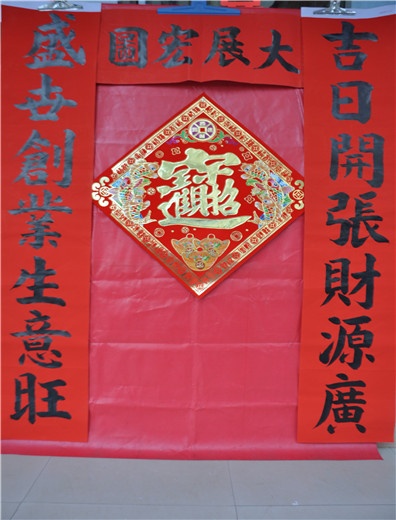 大展宏圖
吉日開張財源廣
盛世創業生意旺
招財進寶